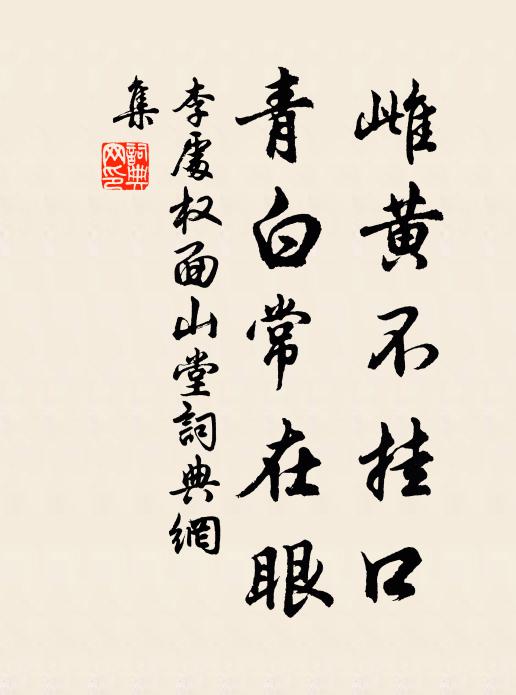 雌黄不挂口
青白常在眼
李處权面山堂詞典網
集
詞典
网印